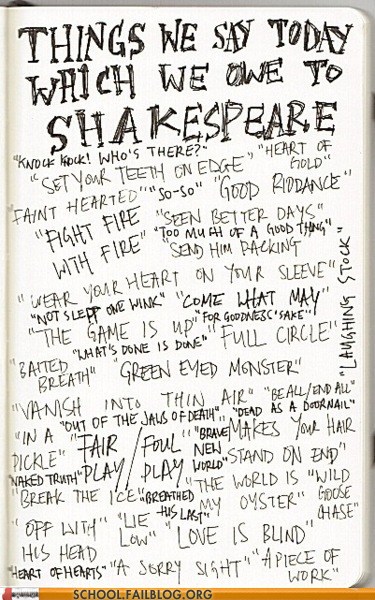 THINGS WE SAY TODAY
WHICH WE OWE TO
SHAKESPEARE
"KNOCK KNOCK! WHO'S THERE?" "HEART OF GOLD"
"SET YOUR TEETH ON EDGE"
"FAINT HEARTED" "SO-SO" "GOOD RIDDANCE"
"FIGHT FIRE WITH FIRE" "SEEN BETTER DAYS"
"TOO MUCH OF A GOOD THING"
"SEND HIM PACKING"
"WEAR YOUR HEART ON YOUR SLEEVE"
"LAUGHING STOCK"
"NOT SLEPT ONE WINK" "COME WHAT MAY"
"THE GAME IS UP" "FOR GOODNESS' SAKE" "FULL CIRCLE"
"WHAT'S DONE IS DONE"
"BAITED BREATH" "GREEN EYED MONSTER"
"VANISH INTO THIN AIR" "BE ALL/END ALL"
"OUT OF THE JAWS OF DEATH" "DEAD AS A DOORNAIL"
"IN A PICKLE" "FAIR PLAY/ / FOUL PLAY" "BRAVE NEW WORLD" "MAKES YOUR HAIR STAND ON END"
"NAKED TRUTH"
"BREAK THE ICE" "BREATHED HIS LAST" "THE WORLD IS MY OYSTER" "WILD GOOSE CHASE"
"OFF WITH HIS HEAD" "LIE LOW" "LOVE IS BLIND"
"HEART OF HEARTS" "A SORRY SIGHT" "A PIECE OF WORK"
SCHOOL.FAILBLOG.ORG